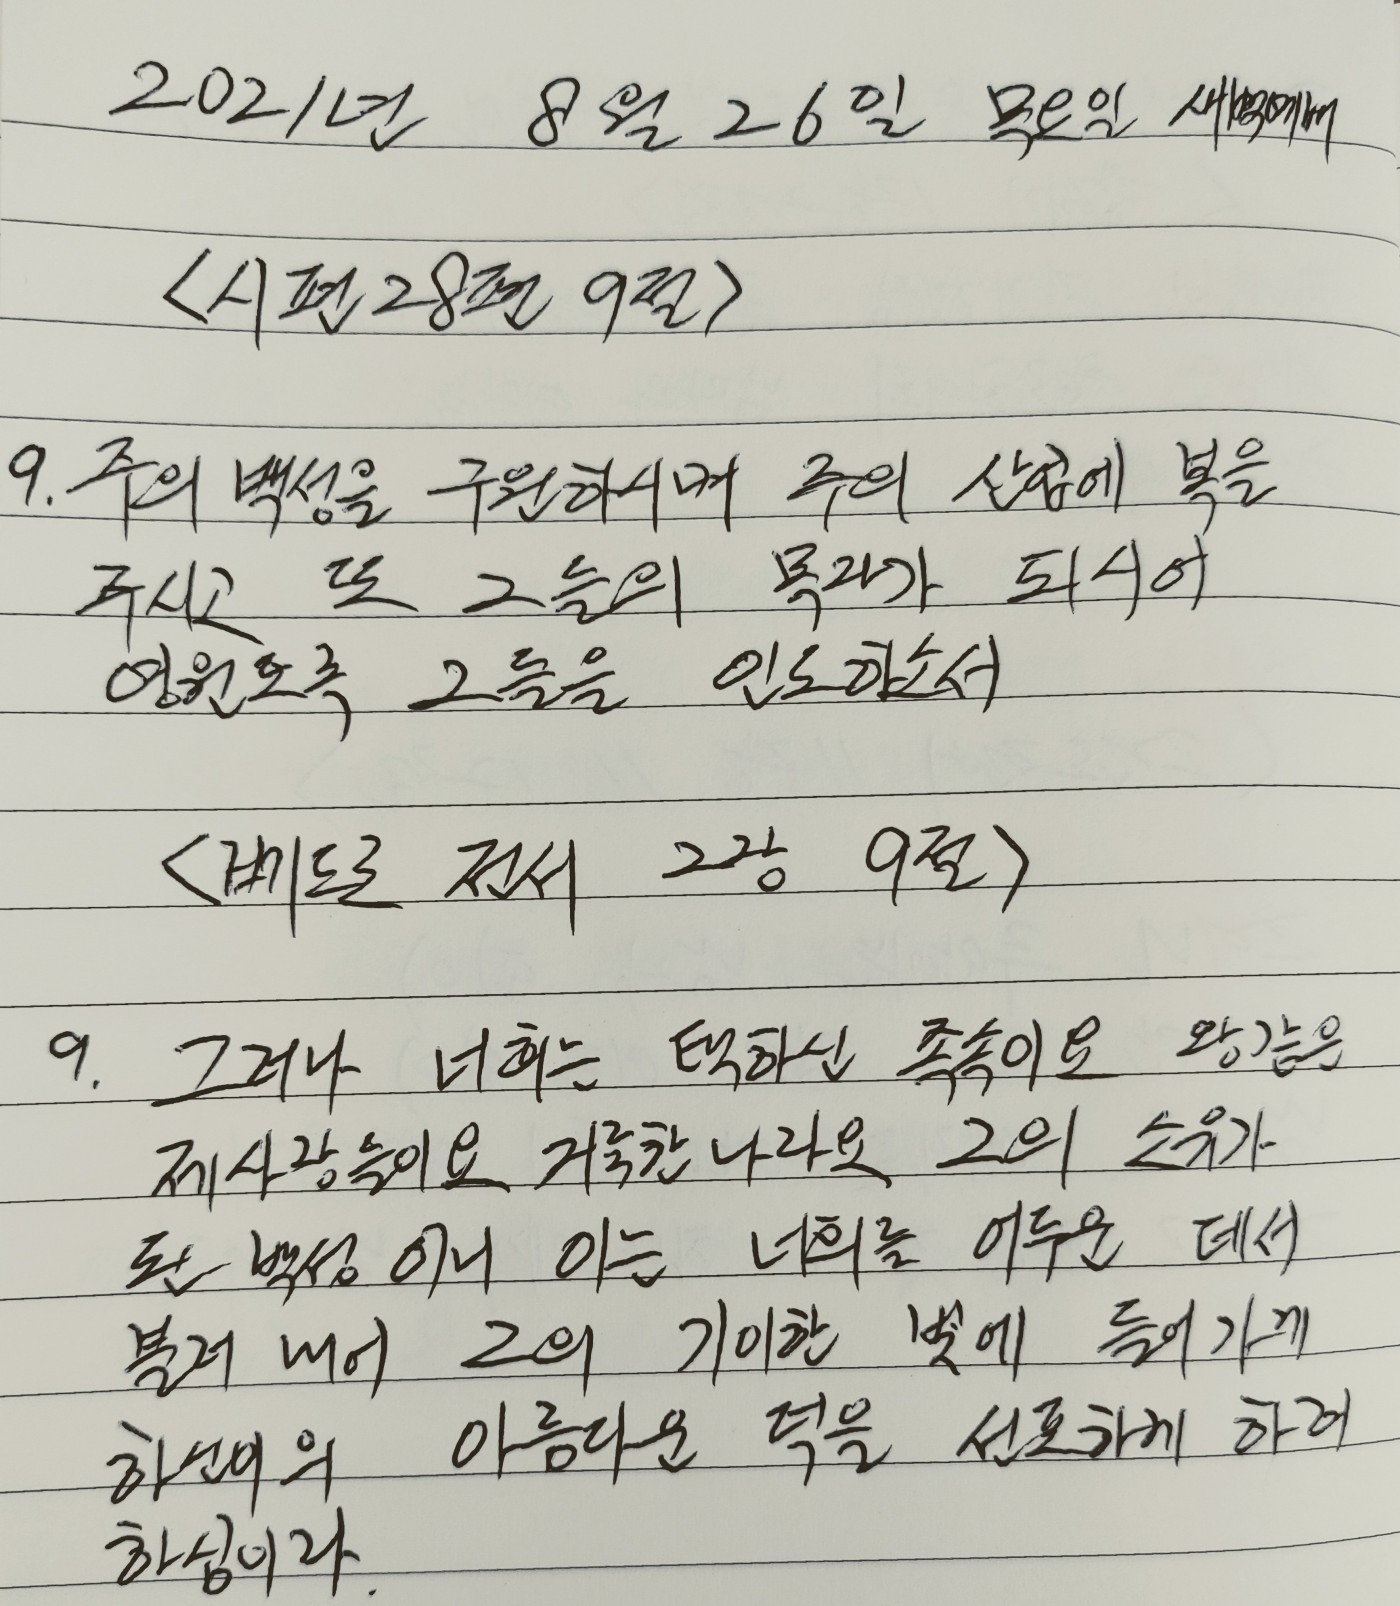 2021년 8월 26일 목요일 새벽예배
<시편 28편 9절>
9. 주의 백성을 구원하시며 주의 산업에 복을
주시고 또 그들의 목자가 되시어
영원토록 그들을 인도하소서
<베드로 전서 2장 9절>
9. 그러나 너희는 택하신 족속이요 왕같은
제사장들이요 거룩한 나라요 그의 소유가
된 백성이니 이는 너희를 어두운 데서
불러 내어 그의 기이한 빛에 들어가게
하신이의 아름다운 덕을 선포하게 하려
하심이라.